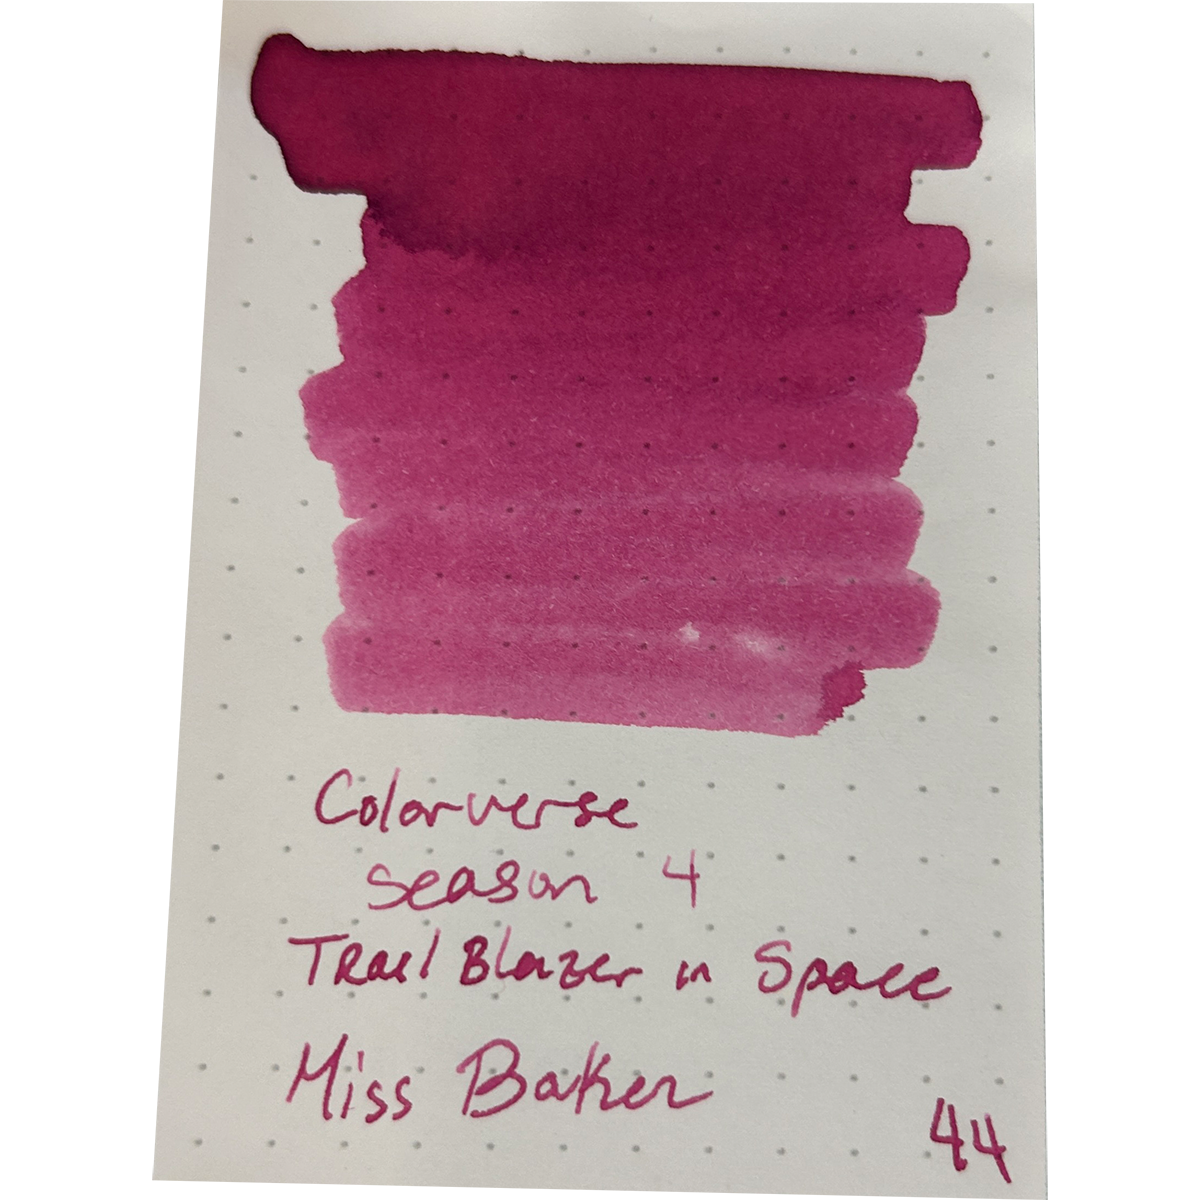 Colorverse
Season 4
Trail Blazer in Space
Miss Baker
44